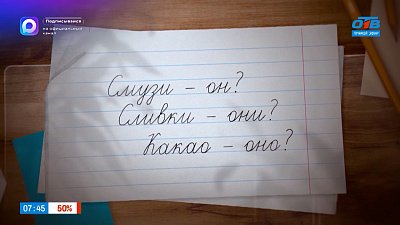 Подписывайся
на официальный
канал
ОТВ
ПРЯМОЙ ЭФИР
Смузи – он?
Сливки – они?
Какао – оно?
07:45 50%